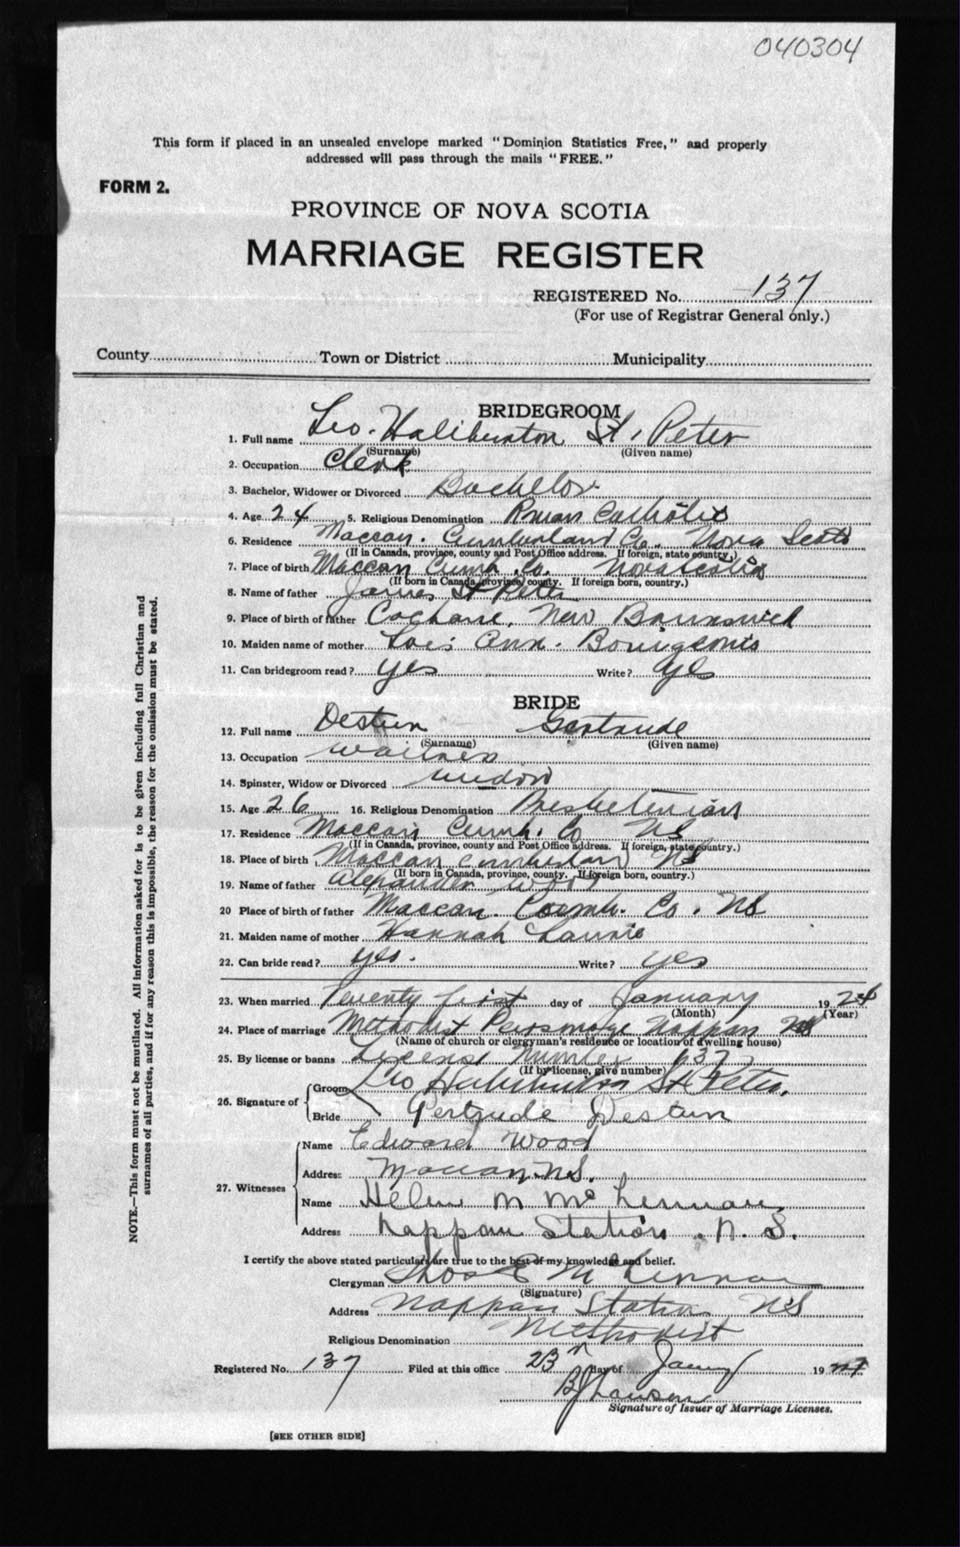 040304
This form if placed in an unsealed envelope marked "Dominion Statistics Free," and properly
addressed will pass through the mails "FREE."
FORM 2.
PROVINCE OF NOVA SCOTIA
MARRIAGE REGISTER
REGISTERED No. 137
(For use of Registrar General only.)
County Town or District Municipality
BRIDEGROOM
1. Full name Leo. Haliburton St. Peter
(Surname) (Given name)
2. Occupation Clerk
3. Bachelor, Widower or Divorced Bachelor
4. Age 24 5. Religious Denomination Roman Catholic
6. Residence Maccan. Cumberland Co. Nova Scotia
(If in Canada, province, county and Post Office address. If foreign, state country.)
7. Place of birth Maccan Cumb. Co. Nova Scotia
(If born in Canada, province, county. If foreign born, country.)
8. Name of father James St Peter
9. Place of birth of father New Brunswick
10. Maiden name of mother Ann.
11. Can bridegroom read? yes Write? yes
BRIDE
12. Full name Gertrude
(Surname) (Given name)
13. Occupation waitress
14. Spinster, Widow or Divorced widow
15. Age 26 16. Religious Denomination Presbeterian
17. Residence Maccan Cumb. Co NS
(If in Canada, province, county and Post Office address. If foreign, state country.)
18. Place of birth Maccan Cumberland NS
(If born in Canada, province, county. If foreign born, country.)
19. Name of father Alexander Wood
20 Place of birth of father Maccan. Cumb. Co. NS
21. Maiden name of mother Hannah
22. Can bride read? yes. Write? yes
23. When married Twenty first day of January 1924
(Month) (Year)
24. Place of marriage Methodist Parsonage Nappan NS
(Name of church or clergyman's residence or location of dwelling house)
25. By license or banns License Number 637
(If by license, give number)
26. Signature of Groom Leo Haliburton St Peter.
Bride Gertrude
27. Witnesses Name Edward Wood
Address Maccan N.S.
Name Helen M McLennan
Address Nappan Station. N. S.
I certify the above stated particulars are true to the best of my knowledge and belief.
Clergyman Thos McLennan
(Signature)
Address Nappan Station NS
Religious Denomination Methodist
Registered No. 137 Filed at this office 23 day of 1924
Signature of Issuer of Marriage Licenses.
[SEE OTHER SIDE]
NOTE.—This form must not be mutilated. All information asked for is to be given including full Christian and
surnames of all parties, and if for any reason this is impossible, the reason for the omission must be stated.